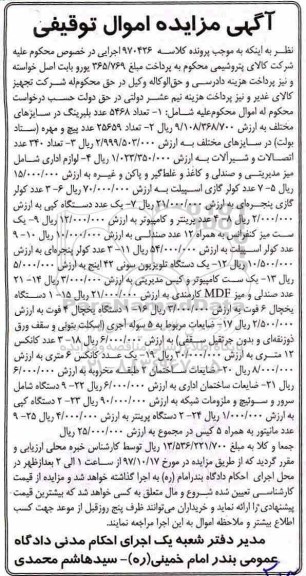 آگهی مزایده اموال توقیفی
نظر به اینکه به موجب پرونده کلاسه ۹۷۰۴۲۶ اجرایی در خصوص محکوم علیه
شرکت کالای پتروشیمی محکوم به پرداخت مبلغ ۳۶۵/۷۶۹ یورو بابت اصل خواسته
و نیز پرداخت هزینه دادرسی و حق‌الوکاله وکیل در حق محکوم‌له شرکت تجهیز
کالای غدیر و نیز پرداخت هزینه نیم عشر دولتی در حق دولت حسب درخواست
محکوم له اموال محکوم‌علیه شامل: ۱- تعداد ۵۴۶۸ عدد بلبرینگ در سایزهای
مختلف به ارزش ۹/۱۰۸/۳۶۸/۷۰۰ ریال ۲- تعداد ۲۵۶۵۹ عدد پیچ و مهره (ستاد
بولت) در سایزهای مختلف به ارزش ۲/۹۹۹/۵۰۳/۰۰۰ ریال ۳- تعداد ۳۴۰ عدد
اتصالات و شیرآلات به ارزش ۱/۰۲۳/۳۵۰/۰۰۰ ریال ۴- لوازم اداری شامل
میز مدیریتی و صندلی و کاغذ و غلط‌گیر و پاکن و غیره به ارزش ۱۵/۰۰۰/۰۰۰
ریال ۵- ۷ عدد کولر گازی اسپیلت به ارزش ۷۰/۰۰۰/۰۰۰ ریال ۶- ۳ عدد کولر
گازی پنجره‌ای به ارزش ۲۱/۰۰۰/۰۰۰ ریال ۷- یک عدد دستگاه کپی به ارزش
۲/۰۰۰/۰۰۰ ریال ۸- ۴ عدد پرینتر و کامپیوتر به ارزش ۱۲/۰۰۰/۰۰۰ ریال ۹- یک
ست میز کنفرانس به همراه ۱۲ عدد صندلی به ارزش ۱۰/۰۰۰/۰۰۰ ریال ۱۰- ۹
عدد کولر اسپیلت به ارزش ۵۴/۰۰۰/۰۰۰ ریال ۱۱- ۳ عدد کولر پنجره‌ای به ارزش
۱۰/۵۰۰/۰۰۰ ریال ۱۲- یک دستگاه تلویزیون سونی ۴۲ اینچ به ارزش ۵/۰۰۰/۰۰۰
ریال ۱۳- یک ست کامپیوتر و کیس مدیریتی به ارزش ۳/۰۰۰/۰۰۰ ریال ۱۴- ۲۱
عدد صندلی و میز MDF کارمندی به ارزش ۲۱/۰۰۰/۰۰۰ ریال ۱۵- ۱ دستگاه
یخچال ۶ فوت به ارزش ۳/۰۰۰/۰۰۰ ریال ۱۶- ۱ دستگاه یخچال ۴ فوت به ارزش
۲/۵۰۰/۰۰۰ ریال ۱۷- ضایعات مربوط به ۵ سوله آجری (اسکلت بتونی و سقف ورق
ذوزنقه‌ای و بدون جرثقیل سقفی) به ارزش ۶/۰۰۰/۰۰۰ ریال ۱۸- ۳ عدد کانکس
۱۲ متری به ارزش ۳۰/۰۰۰/۰۰۰ ریال ۱۹- یک عدد کانکس ۶ متری به ارزش
۸/۰۰۰/۰۰۰ ریال ۲۰- ضایعات ساختمان ۲ طبقه مخروبه به ارزش ۶/۰۰۰/۰۰۰
ریال ۲۱- ضایعات ساختمان اداری به ارزش ۶/۰۰۰/۰۰۰ ریال ۲۲- ۹ دستگاه شامل
سرور و سوئیچ و ملزومات شبکه به ارزش ۹۰/۰۰۰/۰۰۰ ریال ۲۳- ۲ دستگاه کپی
به ارزش ۱/۰۰۰/۰۰۰ ریال ۲۴- ۲ دستگاه پرینتر به ارزش ۴/۰۰۰/۰۰۰ ریال ۲۵- ۹
عدد مانیتور به همراه ۵ کیس در مجموع به ارزش ۲۵/۰۰۰/۰۰۰ ریال
جمعا و کلا به مبلغ ۱۳/۵۳۶/۲۲۱/۷۰۰ ریال توسط کارشناس خبره محلی ارزیابی و
مقرر گردید که از طریق مزایده در مورخ ۹۷/۱۰/۱۷ از ساعت ۱ الی ۲ بعدازظهر در
محل اجرای احکام دادگاه بندرامام (ره) به اجرا گذاشته خواهد شد و مزایده از قیمت
کارشناسی تعیین شده شروع و مال متعلق به کسی خواهد شد که بیشترین قیمت
پیشنهادی را ارائه نماید و خریداران می‌توانند ظرف پنج روز قبل از موعد جهت کسب
اطلاع بیشتر و ملاحظه اموال به این اجرا مراجعه نمایند.
مدیر دفتر شعبه یک اجرای احکام مدنی دادگاه
عمومی بندر امام خمینی(ره)- سیدهاشم محمدی